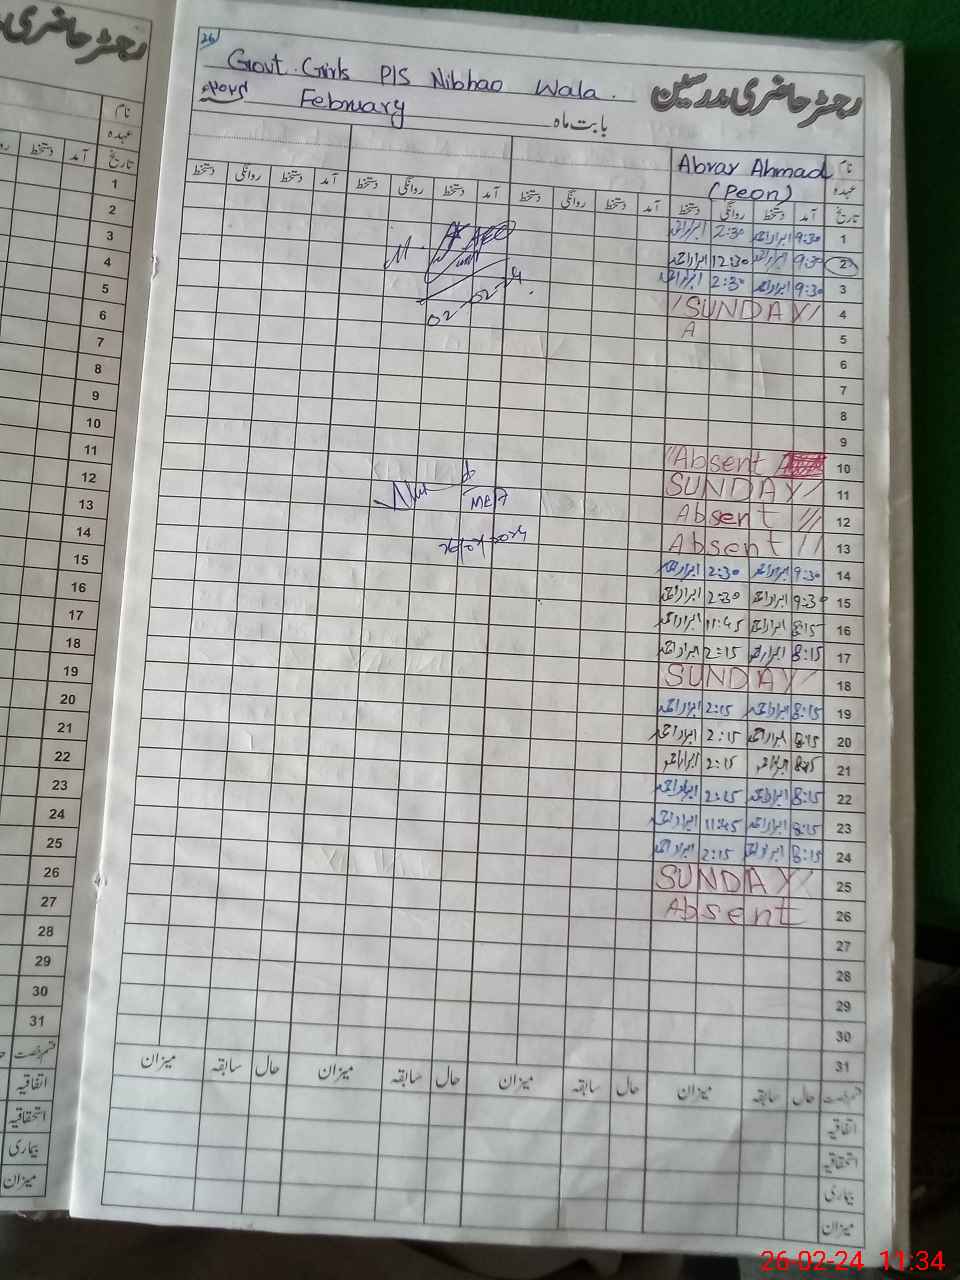 رجسٹر حاضری
نام
عہدہ
تاریخ
آمد
دستخط
1
2
3
4
5
6
7
8
9
10
11
12
13
14
15
16
17
18
19
20
21
22
23
24
25
26
27
28
29
30
31
اتفاقیہ
استحقاقیہ
بیماری
میزان
26
Govt. Girls P/S Nibhao Wala.
رجسٹر حاضری مدرسین
February بابت ماہ
نام Abrar Ahmad
عہدہ (Peon)
تاریخ آمد دستخط روانگی دستخط آمد دستخط روانگی دستخط آمد دستخط روانگی دستخط آمد دستخط روانگی دستخط
1 9:30 ابرار احمد 2:30 ابرار احمد
2 9:30 ابرار احمد 12:30 ابرار احمد
3 9:30 ابرار احمد 2:30 ابرار احمد
4 SUNDAY
5 A
6
7
8
9
10 Absent
11 SUNDAY
12 Absent
13 Absent
14 9:30 ابرار احمد 2:30 ابرار احمد
15 9:30 ابرار احمد 2:30 ابرار احمد
16 8:15 ابرار احمد 11:45 ابرار احمد
17 8:15 ابرار احمد 2:15 ابرار احمد
18 SUNDAY
19 8:15 ابرار احمد 2:15 ابرار احمد
20 8:15 ابرار احمد 2:15 ابرار احمد
21 8:15 ابرار احمد 2:15 ابرار احمد
22 8:15 ابرار احمد 2:15 ابرار احمد
23 8:15 ابرار احمد 11:45 ابرار احمد
24 8:15 ابرار احمد 2:15 ابرار احمد
25 SUNDAY
26 Absent
27
28
29
30
31
02-02-24
26/02/2024
قسم رخصت حال سابقہ میزان حال سابقہ میزان حال سابقہ میزان حال سابقہ میزان
اتفاقیہ
استحقاقیہ
بیماری
میزان
26-02-24 11:34